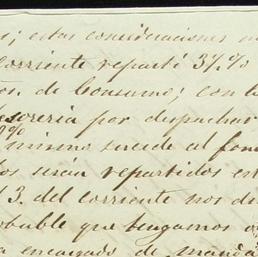 estas consideraciones
corriente reparté 3½%
de Consumo; con
por despachar
mismo sucede al
serán repartidos
3. del corriente nos
que tengamos
encargado de